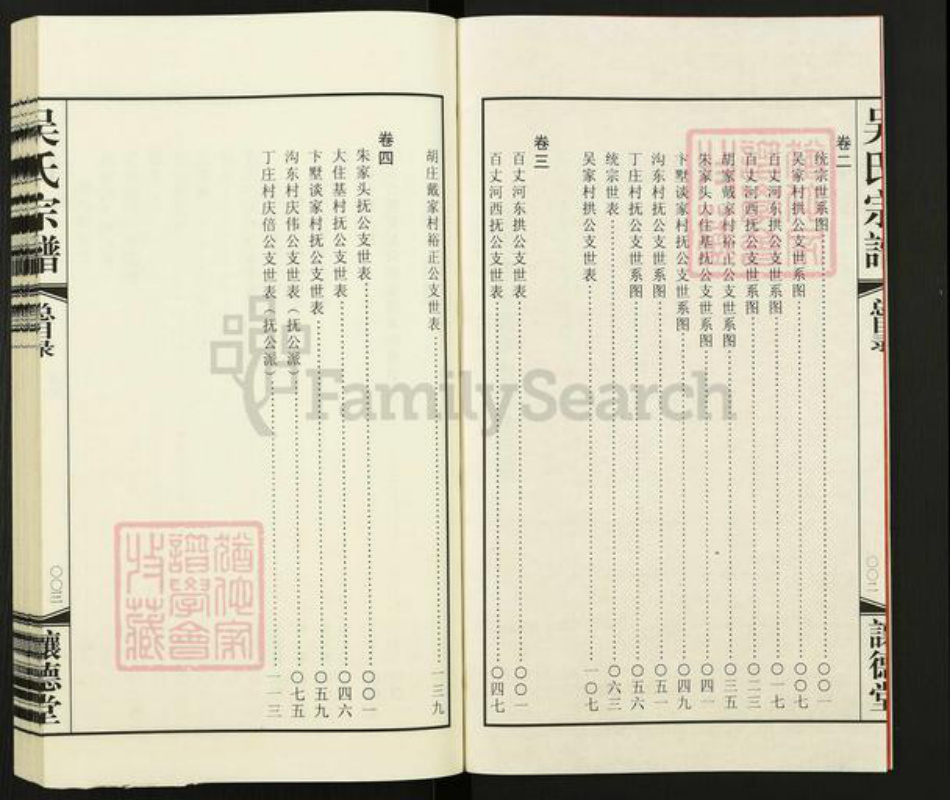 吴氏宗谱
总目录
〇〇二
让德堂
卷二
统宗世系图 〇〇一
吴家村拱公支世系图 〇〇七
百丈河东拱公支世系图 〇一七
百丈河西抚公支世系图 〇二三
胡家戴家村裕正公支世系图 〇三五
朱家头大住基抚公支世系图 〇四一
卞墅谈家村抚公支世系图 〇四九
沟东村抚公支世系图 〇五一
丁庄村抚公支世系图 〇五六
统宗世表 〇六三
吴家村拱公支世表 一〇七
卷三
百丈河东拱公支世表 〇〇一
百丈河西抚公支世表 〇四七
胡庄戴家村裕正公支世表 一三九
卷四
朱家头抚公支世表 〇〇一
大住基村抚公支世表 〇四六
卞墅谈家村抚公支世表 〇五九
沟东村庆伟公支世表（抚公派） 〇七五
丁庄村庆倍公支世表（抚公派） 一一三
吴氏宗谱
总目录
〇〇三
让德堂
猶他家
譜學會
收藏
FamilySearch